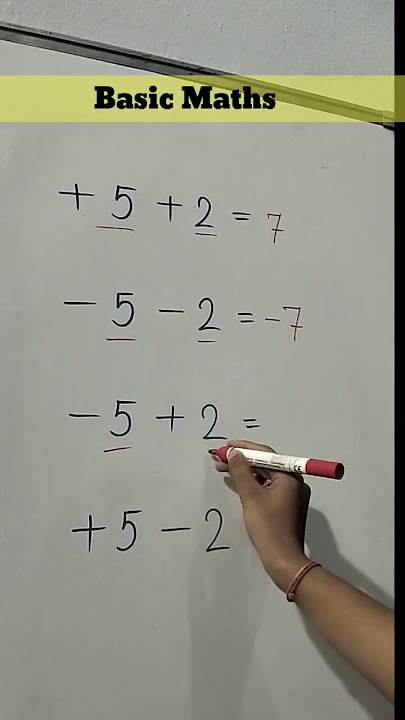 Basic Maths
+ 5 + 2 = 7
- 5 - 2 = -7
- 5 + 2 =
+ 5 - 2